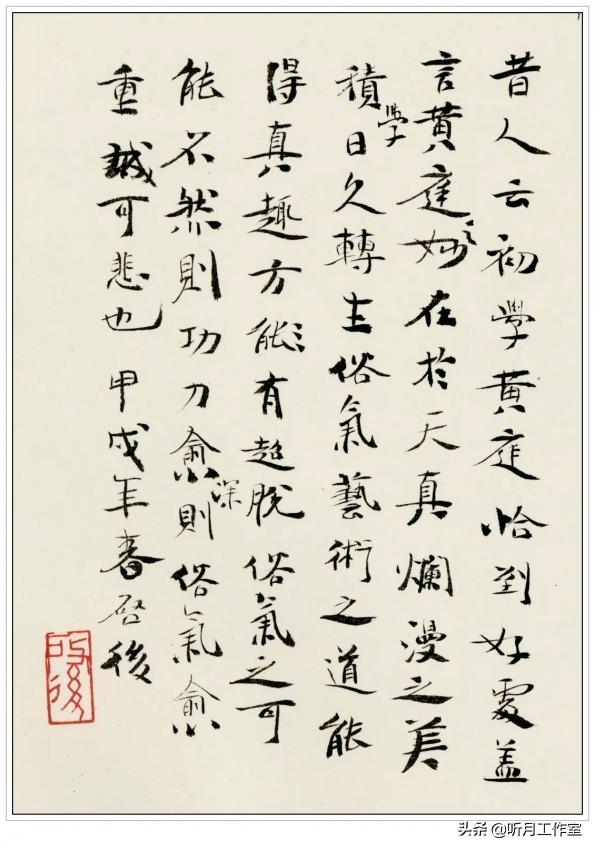 昔人云初學黄庭恰到好處盖
言黄庭之妙在於天真爛漫之美
積學日久轉生俗氣藝術之道能
得真趣方能有超脱俗氣之可
能不然則功力愈深則俗氣愈
重誠可悲也 甲戌年春 启後
启後
头条 @听月工作室